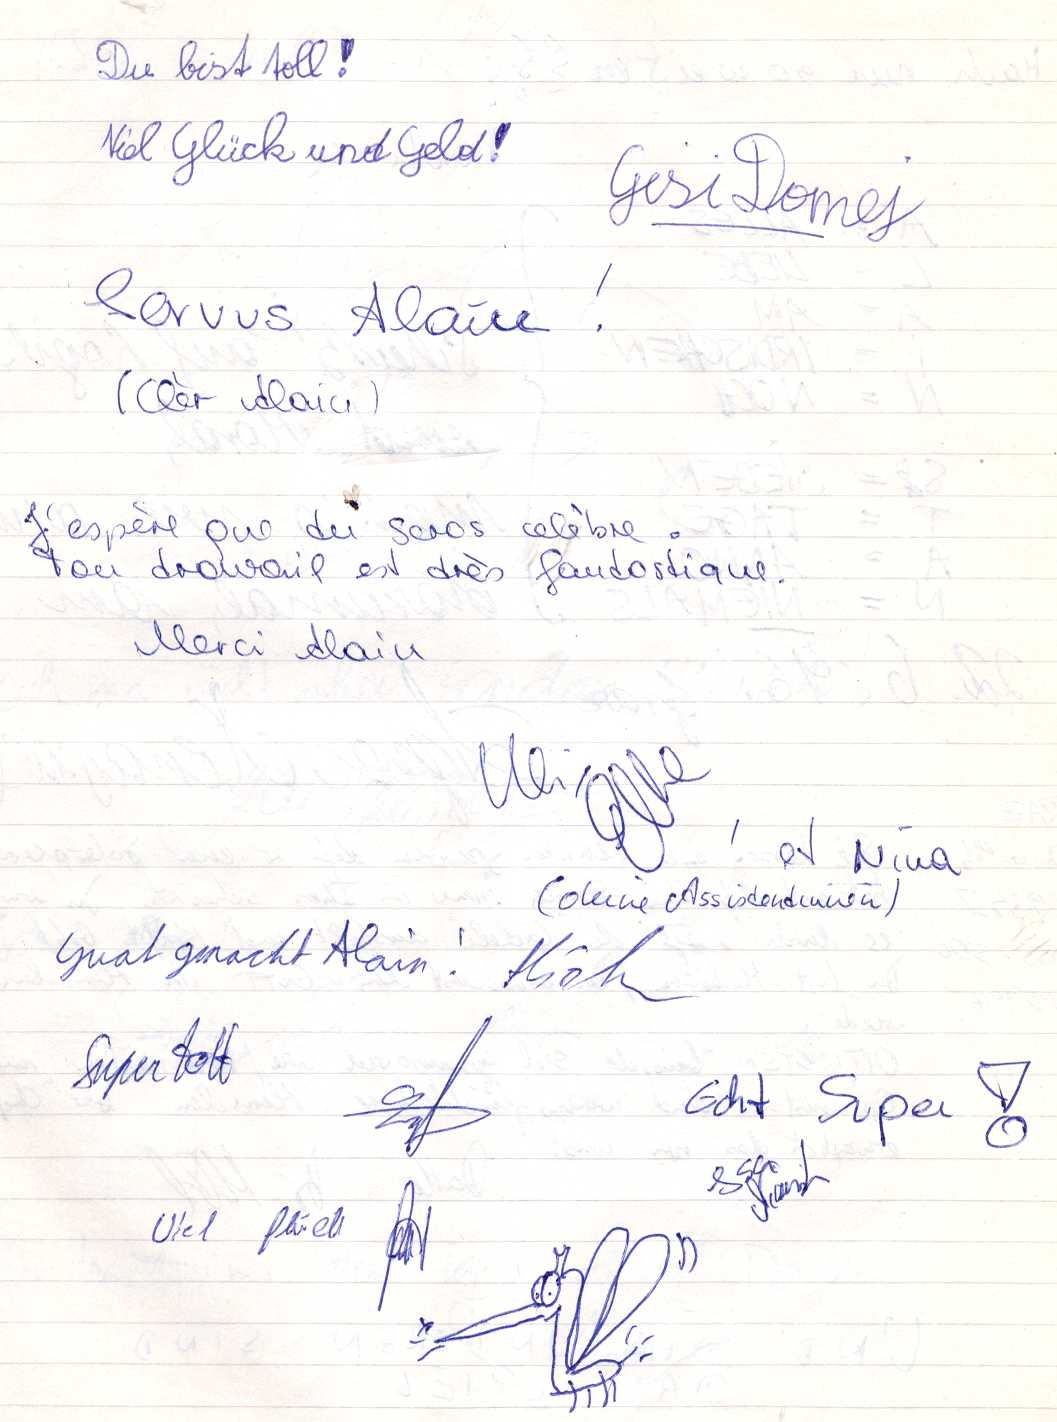 Du bist toll!
Viel Glück und Geld!
Gisi Domej
Servus Alain!
(Cher Alain)
J'espère que tu seras celèbre.
Ton travail est très fantastique.
Merci Alain
Uli
! et Nina
(deine Assistentinnen)
Guat gemacht Alain!
Super toll
Echt Super!
Viel Glück